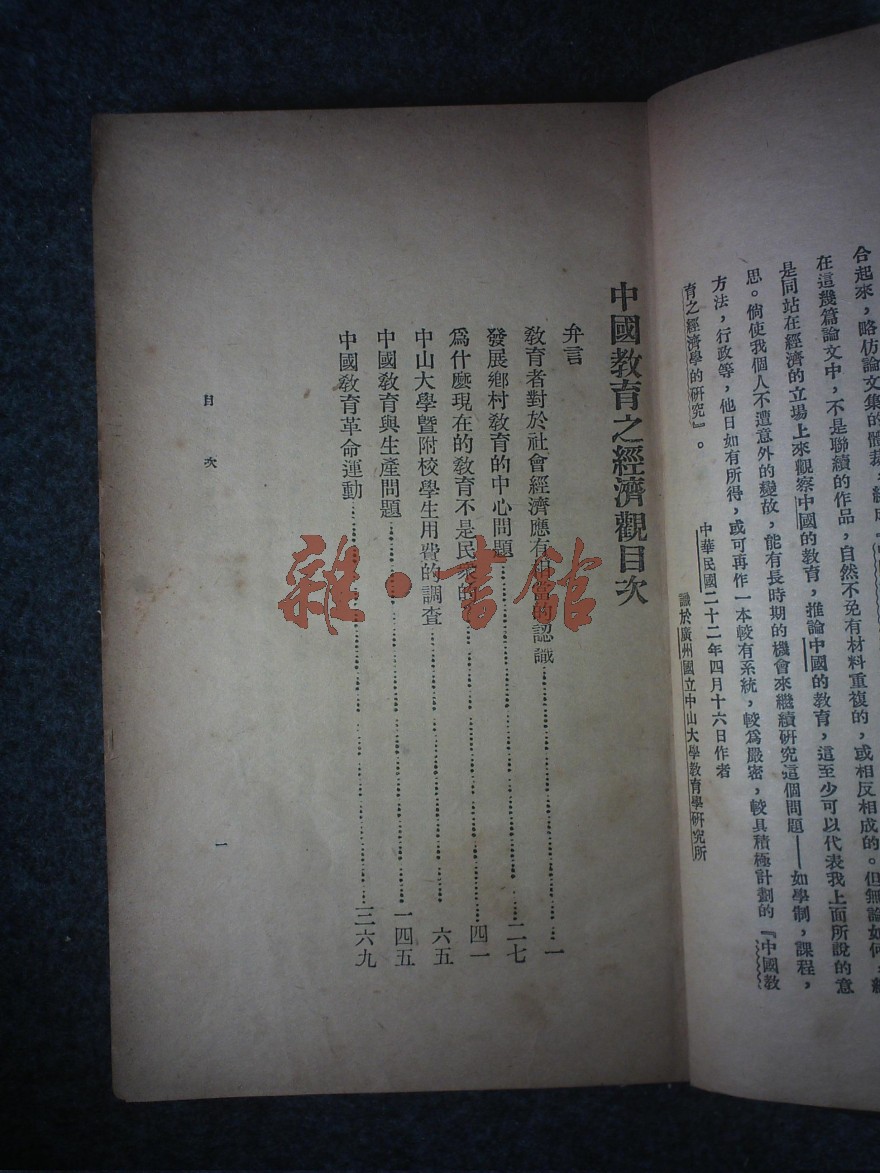 合起來，略仿論文集的體裁，
在這幾篇論文中，不是聯續的作品，自然不免有材料重複的，或相反相成的。但無論如何，
是同站在經濟的立場上來觀察中國的教育，推論中國的教育，這至少可以代表我上面所說的意
思。倘使我個人不遭意外的變故，能有長時期的機會來繼續研究這個問題——如學制，課程，
方法，行政等，他日如有所得，或可再作一本較有系統，較爲嚴密，較具積極計劃的『中國教
育之經濟學的研究』。
中華民國二十二年四月十六日作者
識於廣州國立中山大學教育學研究所
中國教育之經濟觀目次
弁言
教育者對於社會經濟應有相當的認識……一
發展鄉村教育的中心問題……二七
爲什麼現在的教育不是民衆的……四一
中山大學曁附校學生用費的調查……六五
中國教育與生產問題……一四五
中國教育革命運動……三六九
目次
一
雜·書館